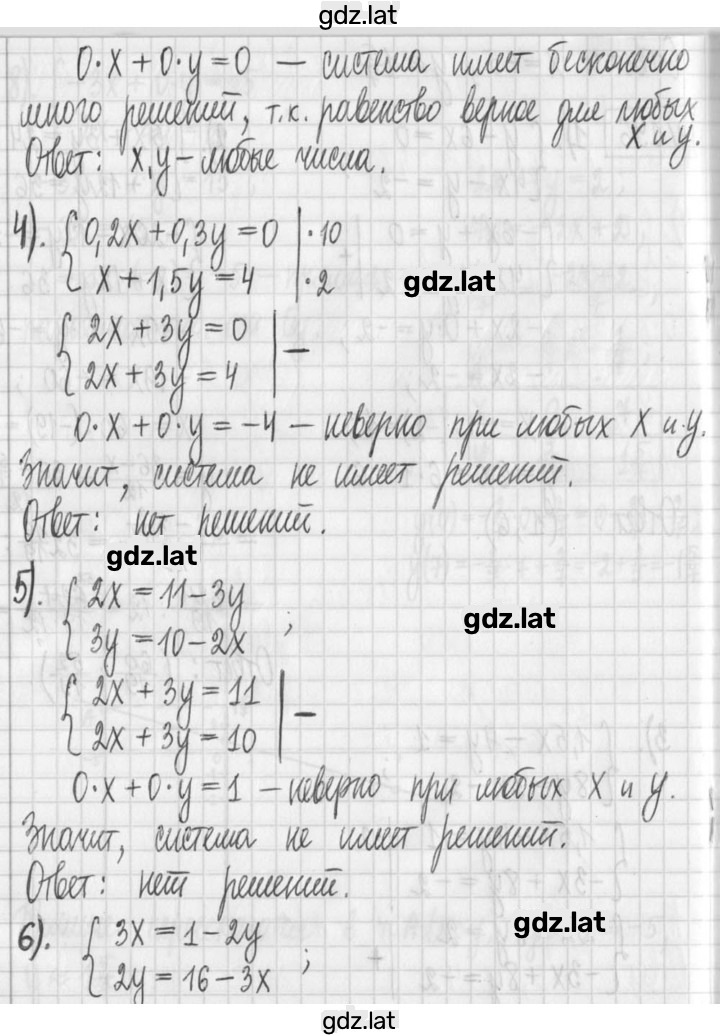 gdz.lat
0·x + 0·y = 0 — система имеет бесконечно
много решений, т.к. равенство верное для любых
x и y.
Ответ: x, y – любые числа.
4). { 0,2x + 0,3y = 0 | ·10
x + 1,5y = 4 | ·2
gdz.lat
{ 2x + 3y = 0
2x + 3y = 4 | —
0·x + 0·y = -4 – неверно при любых x и y.
Значит, система не имеет решений.
Ответ: нет решений.
gdz.lat
5). { 2x = 11 – 3y
3y = 10 – 2x ;
gdz.lat
{ 2x + 3y = 11
2x + 3y = 10 | —
0·x + 0·y = 1 – неверно при любых x и y.
Значит, система не имеет решений.
Ответ: нет решений.
6). { 3x = 1 – 2y
2y = 16 – 3x ;
gdz.lat
gdz.lat